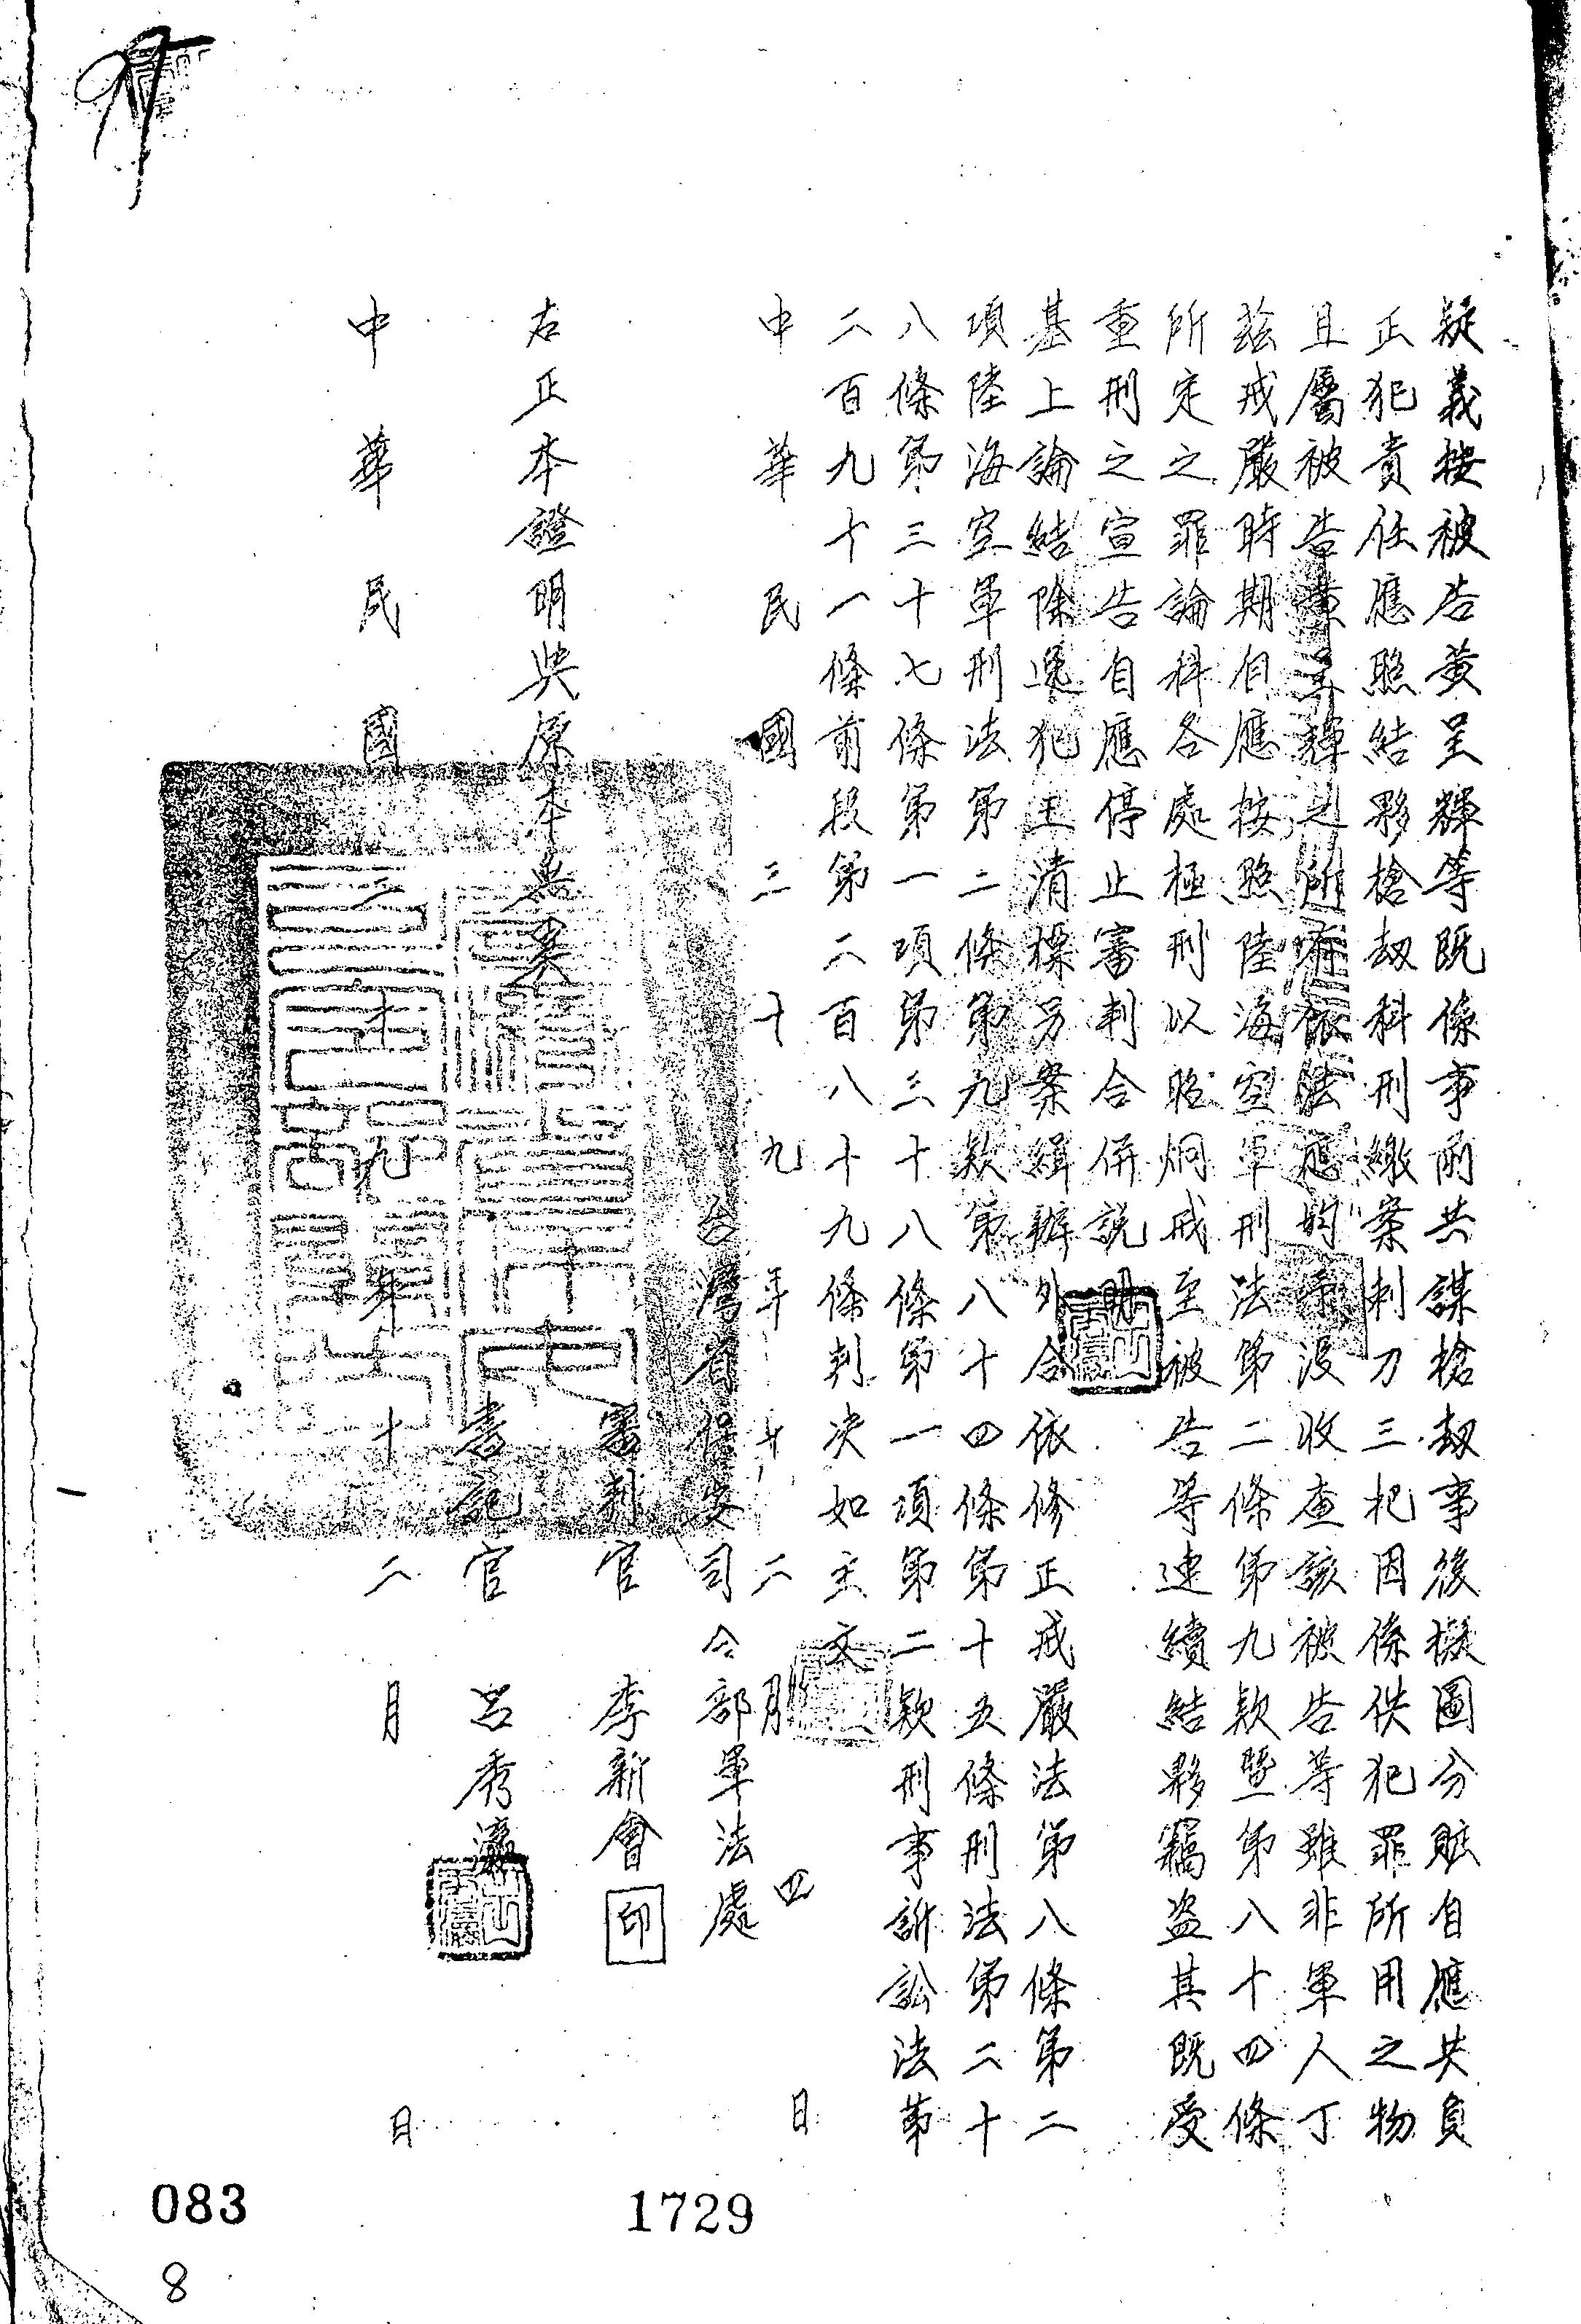 疑義按被告黃呈輝等既係事前共謀槍劫事後擬圖分賍自應共負
正犯責任應照結夥槍劫科刑繳案刺刀三把因係供犯罪所用之物
且屬被告黃呈輝之所有依法應予沒收查該被告等雖非軍人丁
茲戒嚴時期自應按照陸海空軍刑法第二條第九款暨第八十四條
所定之罪論科各處極刑以昭炯戒至被告等連續結夥竊盜其既受
重刑之宣告自應停止審判合併說明
基上論結除逸犯王清標另案緝辦外合依修正戒嚴法第八條第二
項陸海空軍刑法第二條第九款第八十四條第十五條刑法第二十
八條第三十七條第一項第三十八條第一項第二款刑事訴訟法第
二百九十一條前段第二百八十九條判決如主文
中華民國三十九年十二月四日
台灣省保安司令部軍法處
審判官 李新會 印
右正本證明與原本無異
書記官 呂秀瀛
中華民國三十九年十二月 日
083
1729
8